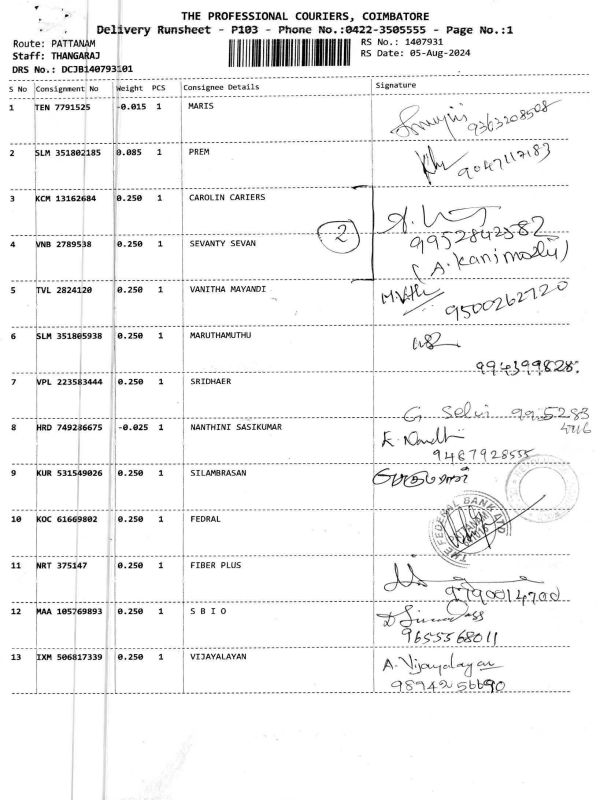 THE PROFESSIONAL COURIERS, COIMBATORE
Delivery Runsheet - P103 - Phone No.:0422-3505555 - Page No.:1
Route: PATTANAM
RS No.: 1407931
Staff: THANGARAJ
RS Date: 05-Aug-2024
DRS No.: DCJB140793101
S No Consignment No Weight PCS Consignee Details Signature
1 TEN 7791525 -0.015 1 MARIS
9363208508
2 SLM 351802185 0.085 1 PREM
9047117183
3 KCM 13162684 0.250 1 CAROLIN CARIERS
2
9952842582
4 VNB 2789538 0.250 1 SEVANTY SEVAN
(A. Kanimozhi)
5 TVL 2824120 0.250 1 VANITHA MAYANDI
9500262720
6 SLM 351805938 0.250 1 MARUTHAMUTHU
7 VPL 223583444 0.250 1 SRIDHAER
G. Selvi 995283
8 HRD 749286675 -0.025 1 NANTHINI SASIKUMAR
9487928555
9 KUR 531549026 0.250 1 SILAMBRASAN
10 KOC 61669802 0.250 1 FEDRAL
THE FEDERAL BANK LTD
11 NRT 375147 0.250 1 FIBER PLUS
9790014700
12 MAA 105769893 0.250 1 S B I O
9655568011
13 IXM 506817339 0.250 1 VIJAYALAYAN
A. Vijayalayan
9894256690